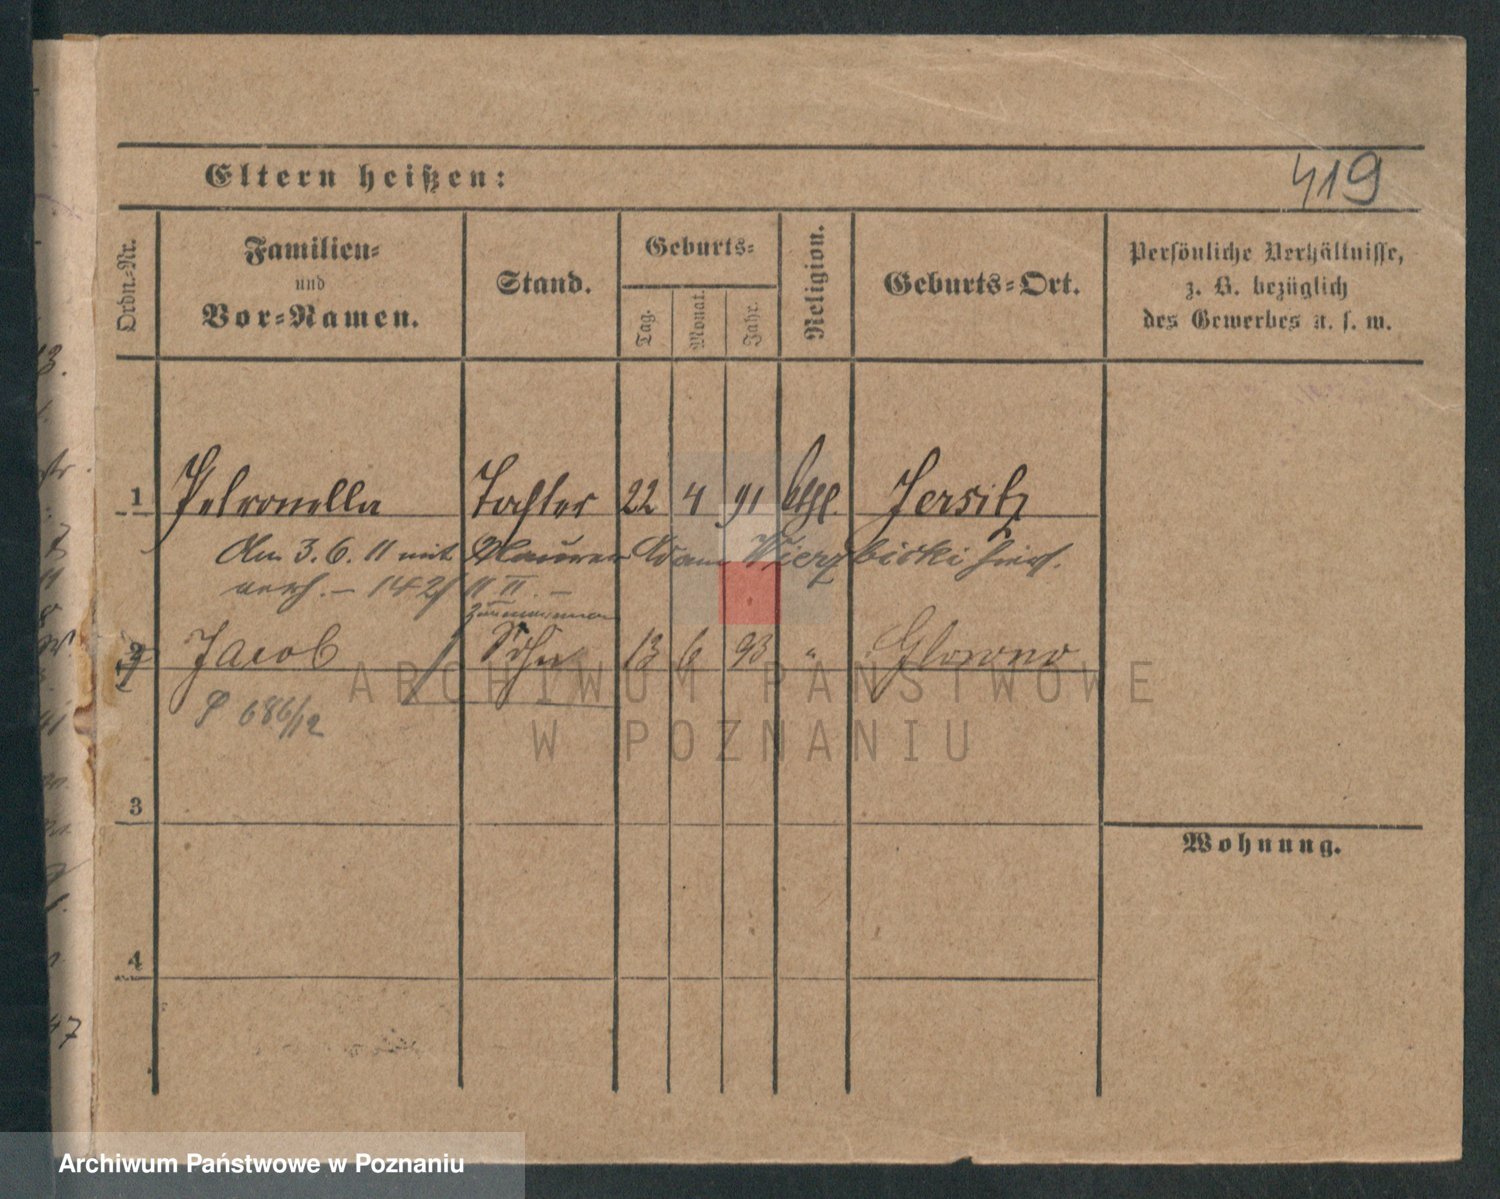 Eltern heißen:
419
Ordn.-Nr.
Familien-
und
Vor-Namen.
Stand.
Geburts-
Tag.
Monat.
Jahr.
Religion.
Geburts-Ort.
Persönliche Verhältnisse,
z. B. bezüglich
des Gewerbes u. s. w.
1 Petronella Tochter 22 4 91 kthl. Jersitz
Am 3.6.11 mit Maurer Adam Wierzbicki hier
verh. – 142/11 II. –
2 Jacob Sohn 13 6 93 " Glowno
P 686/12
3
Wohnung.
4
47
ARCHIWUM PAŃSTWOWE
W POZNANIU
Archiwum Państwowe w Poznaniu